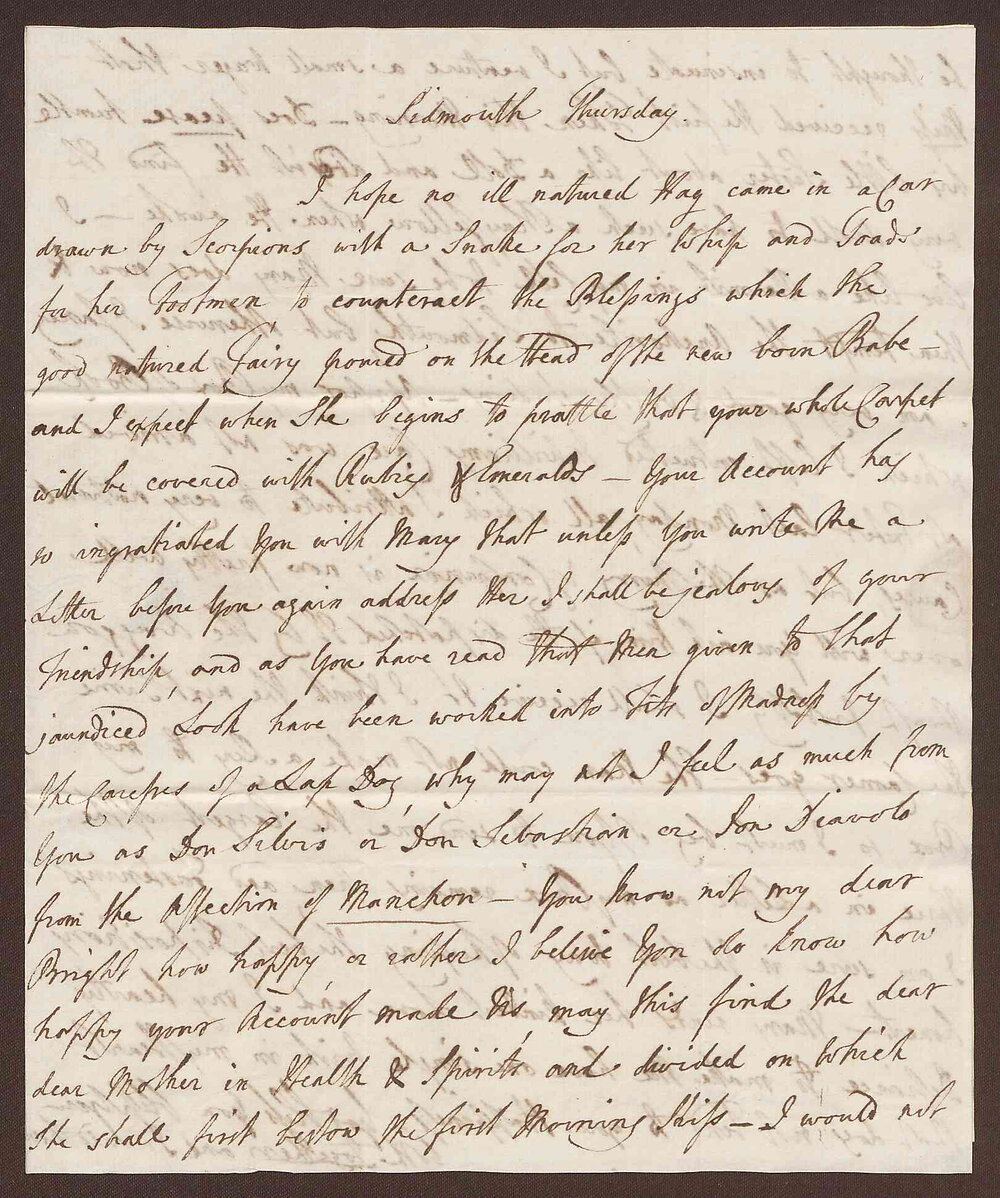 Sidmouth Thursday
I hope no ill natured Hag came in a Car
drawn by Scorpions with a Snake for her Whip and Toads
for her Footmen to counteract the Blessings which the
good natured Fairy poured on the Head of the new born Babe –
and I expect when She begins to prattle that your whole Carpet
will be covered with Rubies & Emeralds – Your Account has
so ingratiated You with Mary that unless You write Me a
Letter before You again address Her I shall be jealous of your
Friendship, and as You have read that Men given to that
jaundiced Look have been worked into Fits of Madness by
the Caresses of a Lap Dog, why may not I feel as much from
You as Don Silvio or Don Sebastian or Don Diavolo
from the Affection of Manchon – You know not my dear
Bright how happy, or rather I believe You do know how
happy your Account made Us, may this find the dear
dear Mother in Health & Spirits and divided on Which
She shall first bestow the first Morning Kiss – I would not